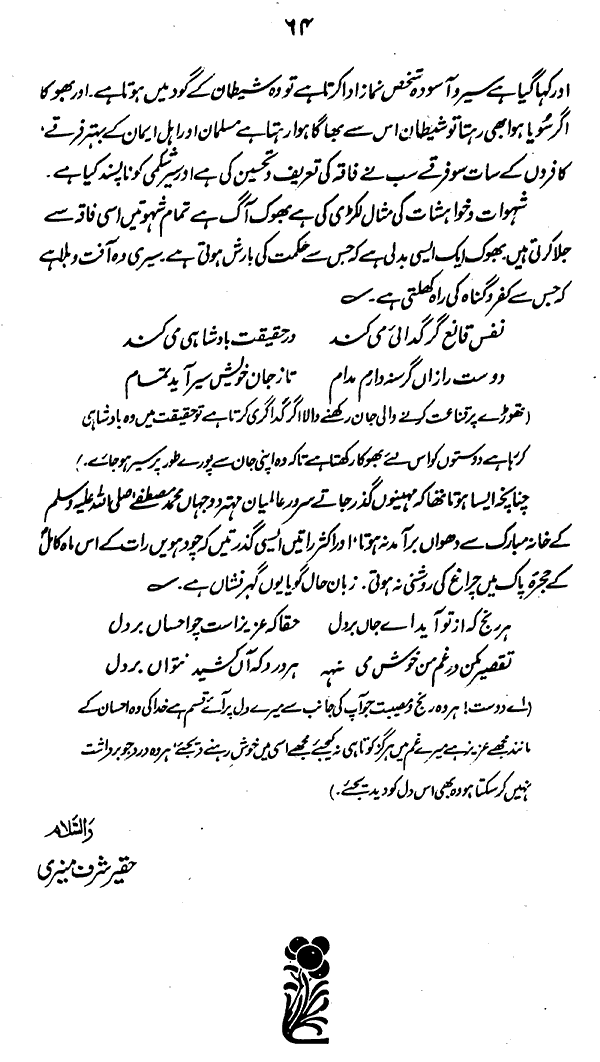 ۶۴
اور کہا گیا ہے سیر و آسودہ شخص نماز ادا کرتا ہے تو وہ شیطان کے گود میں ہوتا ہے۔ اور بھوکا
اگر سویا ہوا بھی رہتا تو شیطان اس سے بھاگا ہوا رہتا ہے مسلمان اور اہل ایمان کے بہتر فرقے،
کافروں کے سات سو فرقے سب نے فاقہ کی تعریف و تحسین کی ہے اور سیر شکمی کو ناپسند کیا ہے۔
شہوات و خواہشات کی مثال لکڑی کی ہے بھوک آگ ہے تمام شہوتیں اسی فاقہ سے
جلا کرتی ہیں۔ بھوک ایک ایسی بدلی ہے کہ جس سے حکمت کی بارش ہوتی ہے۔ سیری وہ آفت و بلا ہے
کہ جس سے کفر و گناہ کی راہ کھلتی ہے۔ ؎
نفس قانع گر گدائی می کند در حقیقت بادشاہی می کند
دوست را زاں گرسنہ دارم مدام تا ز جان خویش سیر آید تمام
(تھوڑے پر قناعت کرنے والی جان رکھنے والا اگر گداگری کرتا ہے تو حقیقت میں وہ بادشاہی
کر رہا ہے دوستوں کو اس لئے بھوکا رکھتا ہے تاکہ وہ اپنی جان سے پورے طور پر سیر ہو جائے۔)
چنانچہ ایسا ہوتا تھا کہ مہینوں گذر جاتے سرور عالمیان مہتر دو جہاں محمد مصطفیٰ صلی اللہ علیہ وسلم
کے خانہ مبارک سے دھواں برآمد نہ ہوتا، اور اکثر راتیں ایسی گذرتیں کہ چودہویں رات کے اس ماہ کامل
کے حجرۂ پاک میں چراغ کی روشنی نہ ہوتی۔ زبان حال گویا یوں گہر فشاں ہے۔ ؎
ہر رنج کہ از تو آید اے جاں بر دل حقا کہ عزیز است چو احساں بر دل
تقصیر مکن در غم من خوش می نہہ ہر درد کہ آں کشید نتواں بر دل
(اے دوست! ہر وہ رنج و مصیبت جو آپ کی جانب سے میرے دل پر آئے قسم ہے خدا کی وہ احسان کے
مانند مجھے عزیز ہے میرے غم میں ہرگز کوتاہی نہ کیجئے مجھے اسی میں خوش رہنے دیجئے، ہر وہ درد جو برداشت
نہیں کر سکتا ہو وہ بھی اس دل کو دیدیجئے۔)
والسلام
حقیر شرف منیری